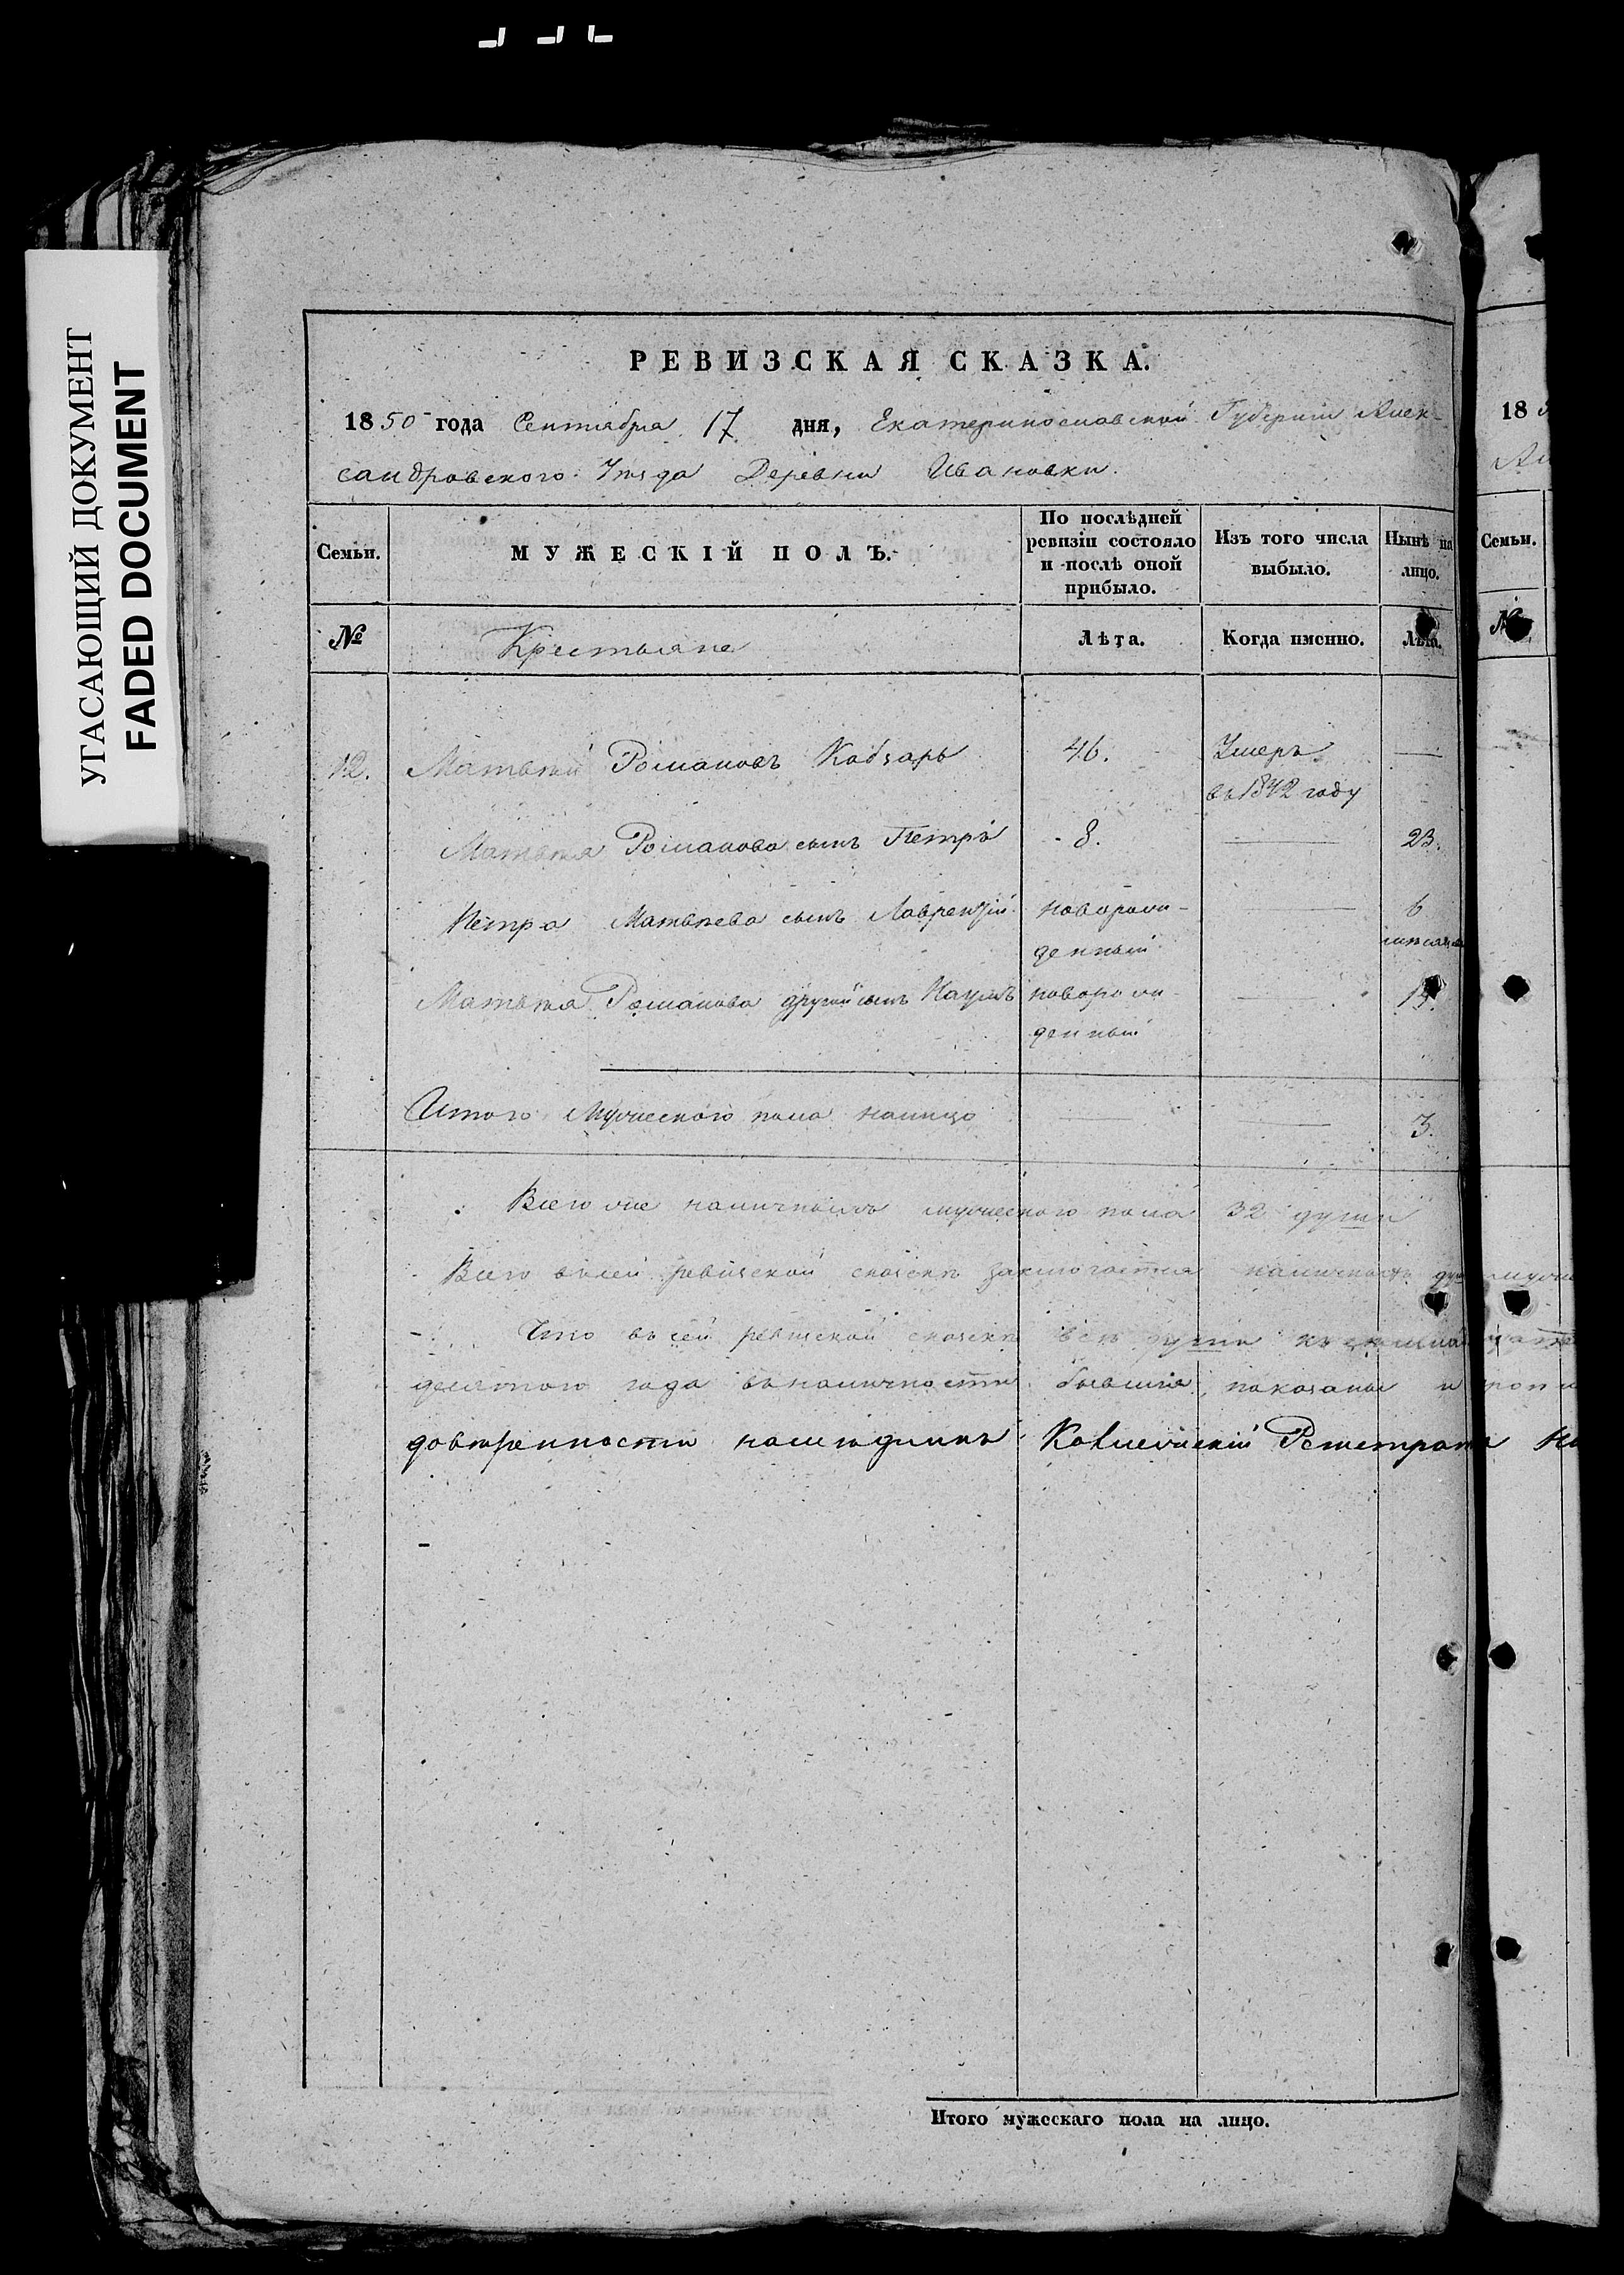 УГАСАЮЩИЙ ДОКУМЕНТ
FADED DOCUMENT
РЕВИЗСКАЯ СКАЗКА.
1850 года Сентября 17 дня, Екатеринославской Губернiи Алек-
сандровского Уѣзда Деревни Ивановки.
Семьи. МУЖЕСКIЙ ПОЛЪ. По послѣдней ревизiи состояло и послѣ оной прибыло. Изъ того числа выбыло. Нынѣ на лицо.
№ Крестьяне Лѣта. Когда именно. Лѣта.
12. Матвѣй Романовъ Кобзарь 46. Умеръ —
въ 1842 году
Матвѣя Романова сынъ Петръ 8. — 23.
Петра Матвѣева сынъ Лаврентiй новорож- — 6
денный мѣсяцевъ
Матвѣя Романова другой сынъ Наумъ новорож- —
денный
Итого Мужеского пола налицо — — 3.
Всего же наличныхъ мужеского пола 32 души
Всего въ сей ревизской сказкѣ заключается наличныхъ
Что въ сей ревизской сказкѣ всѣ души къ
года въ наличности бывшiя, показаны и
довѣренности наслѣдник Коллежскiй
Итого мужескаго пола на лицо.
18
Семьи.
№